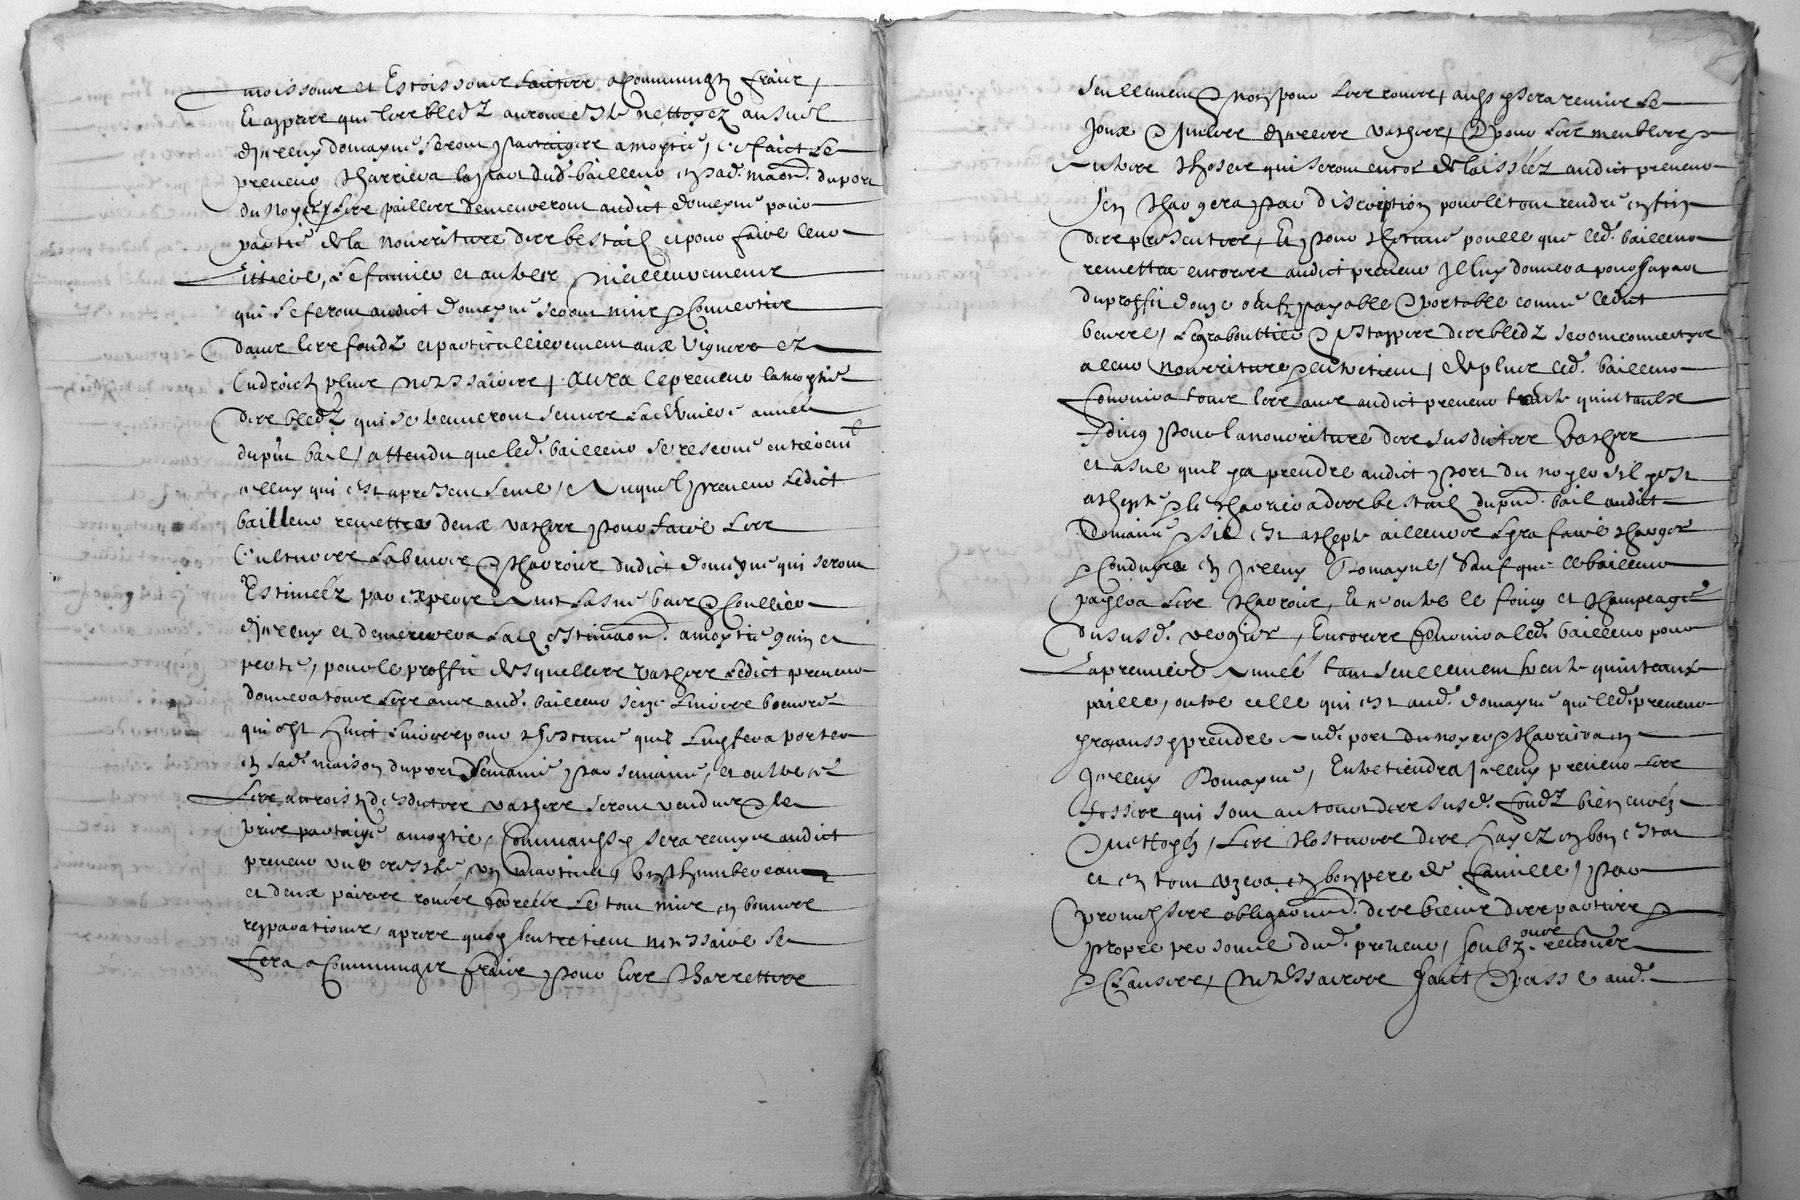 moissons et Escoissons lautre a Communs fraiz,
Et appres que les bledz auront esté nettoyez au suel
dicelluy domayne seront partaiges a moytié, Ce faict le
preneur Charriera la part dud. bailleur en sad. maon. du port
du Noyer, les pailles demeureront audict domayne pour
partie de la nourriture des bestail et pour faire leur
Littiere, le fumier et autres meilleurements
qui se feront audict domayne seront mis & Convertis
dans les fondz et particullierement aux Vignes ez
Endroictz plus necessaires, Aura le preneur la moytié
des bledz qui se leveront en la derniere année
du pnt bail, attendu que led. bailleur se reserve entierem.t
celluy qui est a present semé, Auquel preneur ledict
bailleur remettra deux vaches pour faire les
Cultures labeurs & Charrois dudict domayne qui seront
Estimeéz par expers
dicelluy et demeurera lad. estimaon. a moytié gain et
perte, pour le proffit desquelles vaches ledict preneur
donnera tous les ans aud. bailleur seize livres beurre
qui est huict livres pour Chescune quil luy fera porter
en sad. maison du port semaine par semaine, et oultre ce
les accroist desdictes vaches seront vendus & le
pris partaigé a moytié, Comm'aussy sera remys audict
preneur une
et deux paires roues le tout mis en bonnes
repparations, apres quoy lentretient necessaire se
fera a Communs fraiz pour les Charrettes
seullement & non pour les roues, aussy sera remis le
Joux & Juilles dicelles vaches, & pour les meubles &
Autres Choses qui seront encor delaisséez audict preneur
sen Chargera par discription pour le tout rendre en fin
des presentes, Et pour Chescune poulle que led. bailleur
remettra encores audict preneur Il luy donnera pour sa part
du proffit douze oeufz payable & portable comme ledict
beurre, & estappes des bledz seront convertys
a leur nourriture & entretient, de plus led. bailleur
fournira tous les ans audict preneur trente quintaulx
foing pour la nourriture des susdictes Vaches
et a sue quil yra prendre audict port du noyer sil y est
achepté & le Charriera des bestail du pnt. bail audict
Domaine & sil est achepté ailleurs lyra faire Charger
& Conduyre en Icelluy Domayne, Sauf que le bailleur
payera les Charrois, Et oultre le foing et Champeage
du susd. vergier, Encores fournira led. bailleur pour
La premiere Année tant seullement trente quinteaux
paille, oultre celle qui est aud. domayne que led. preneur
yra aussy prendre aud. port du noyer & Charriera en
Icelluy Domayne, Entretiendra Icelluy preneur les
fosses qui sont au tour des susd. fondz bien curéz
& nettoyés, les Clostures des hayez en bon estat
et en tout uzera en bon pere de famille, par
promesses obligaons. des biens des parties &
propre personne dud. preneur, soubz ouve renoncé
& Clauses, Necessaires faict & passé aud.